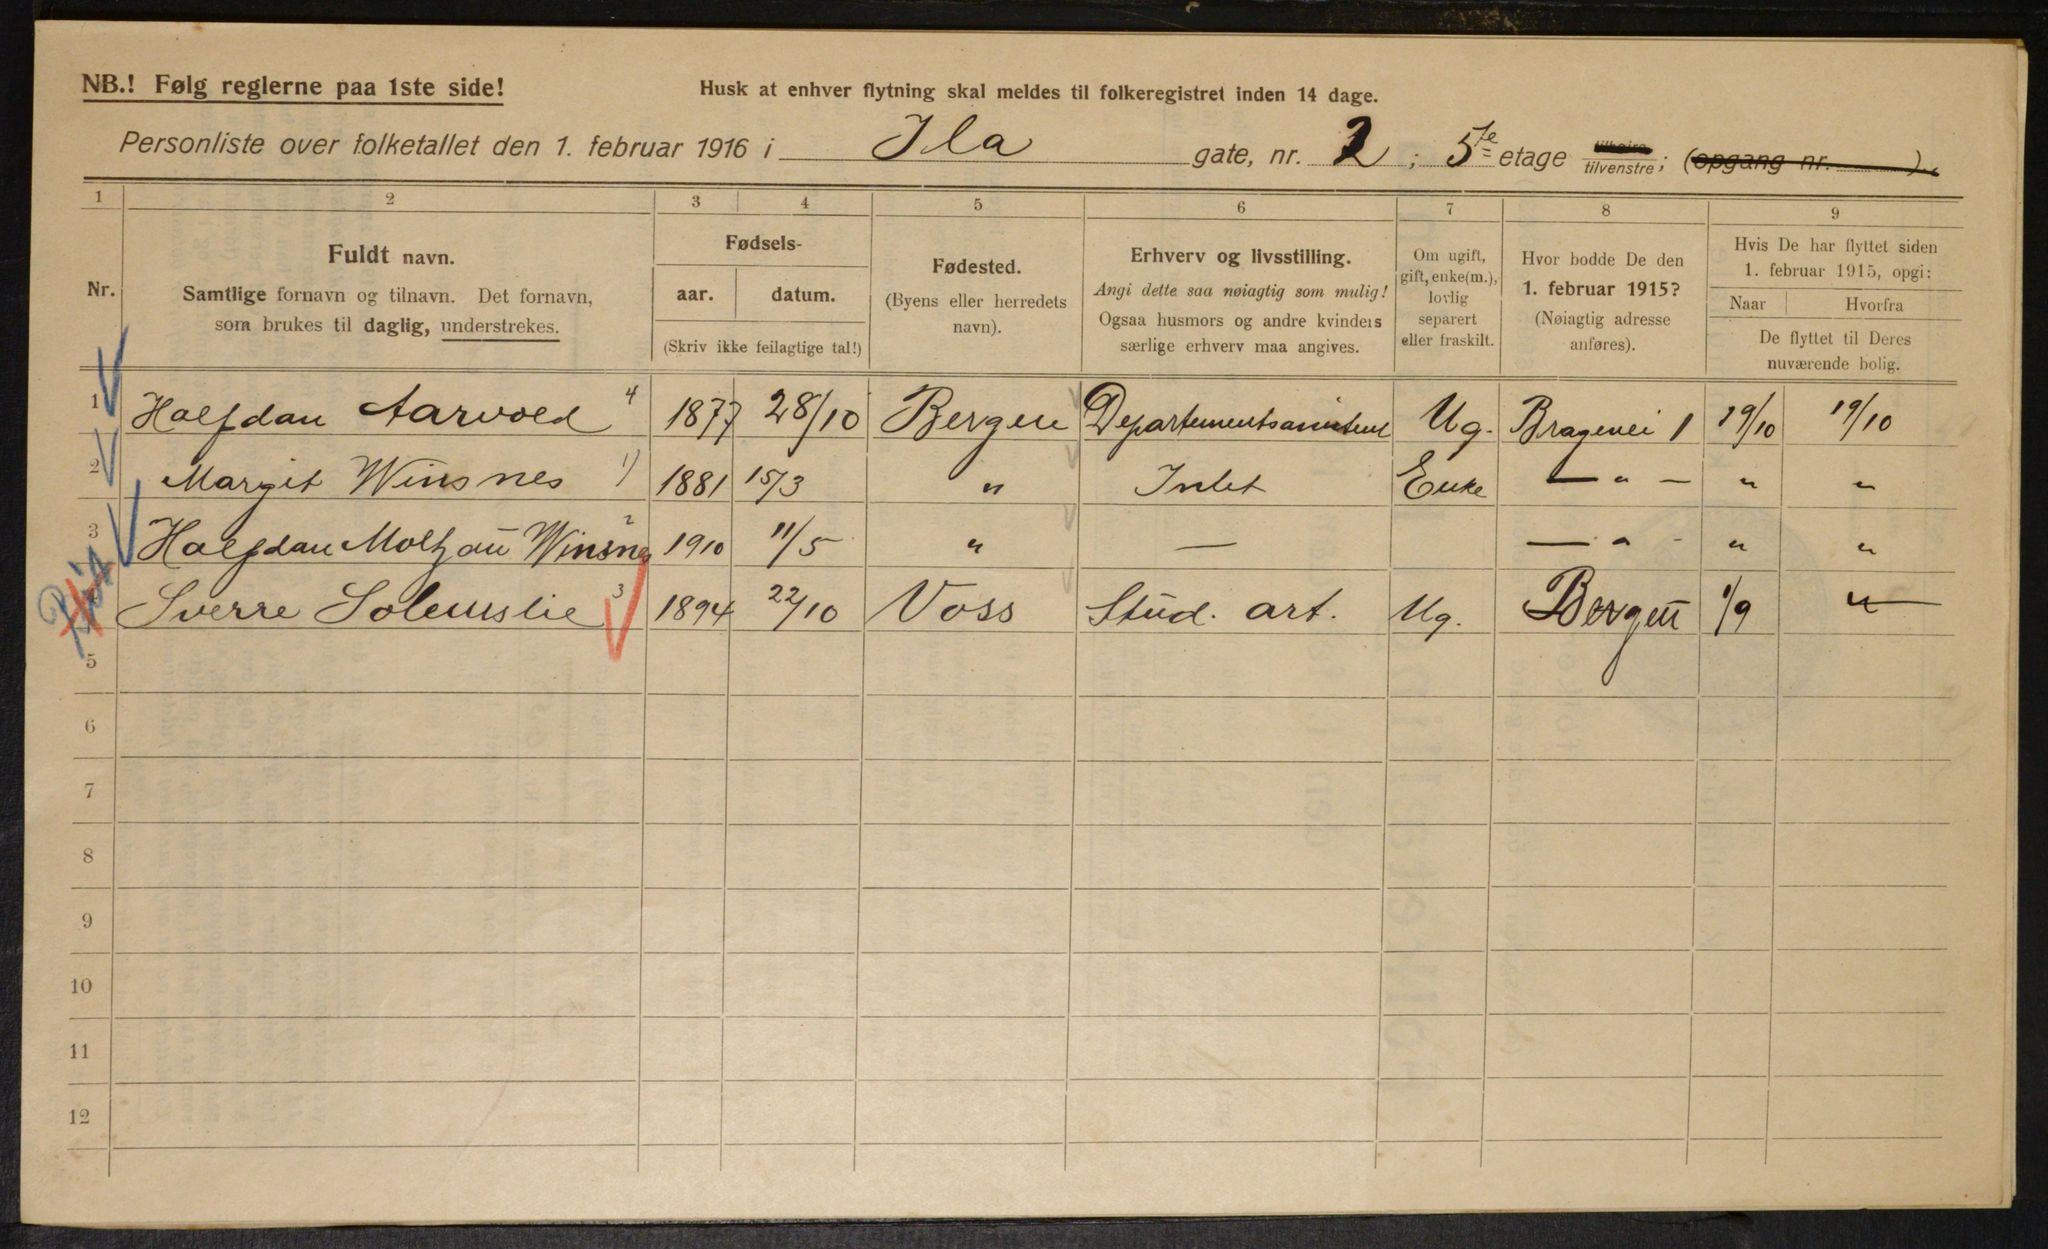 NB.! Følg reglerne paa 1ste side!
Husk at enhver flytning skal meldes til folkeregistret inden 14 dage.
Personliste over folketallet den 1. februar 1916 i Ila gate, nr. 2; 5te etage tilhøire/tilvenstre; (opgang nr. ).
1 2 3 4 5 6 7 8 9
Nr.
Fuldt navn.
Samtlige fornavn og tilnavn. Det fornavn,
som brukes til daglig, understrekes.
Fødsels-
aar. datum.
(Skriv ikke feilagtige tal!)
Fødested.
(Byens eller herredets
navn).
Erhverv og livsstilling.
Angi dette saa nøiagtig som mulig!
Ogsaa husmors og andre kvinders
særlige erhverv maa angives.
Om ugift,
gift, enke(m.),
lovlig
separert
eller fraskilt.
Hvor bodde De den
1. februar 1915?
(Nøiagtig adresse
anføres).
Hvis De har flyttet siden
1. februar 1915, opgi:
Naar Hvorfra
De flyttet til Deres
nuværende bolig.
1 Halfdan Aarvold 4 1877 28/10 Bergen Departementsassistent Ug. Bragevei 1 19/10 19/10
2 Margit Winsnes 1) 1881 15/3 " Intet Enke — " — " "
3 Halfdan Moltzau Winsnes 2 1910 11/5 " — — " - " "
Sverre Solemslie 3 1894 22/10 Voss Stud. art. Ug. Bergen 1/9 "
5
6
7
8
9
10
11
12